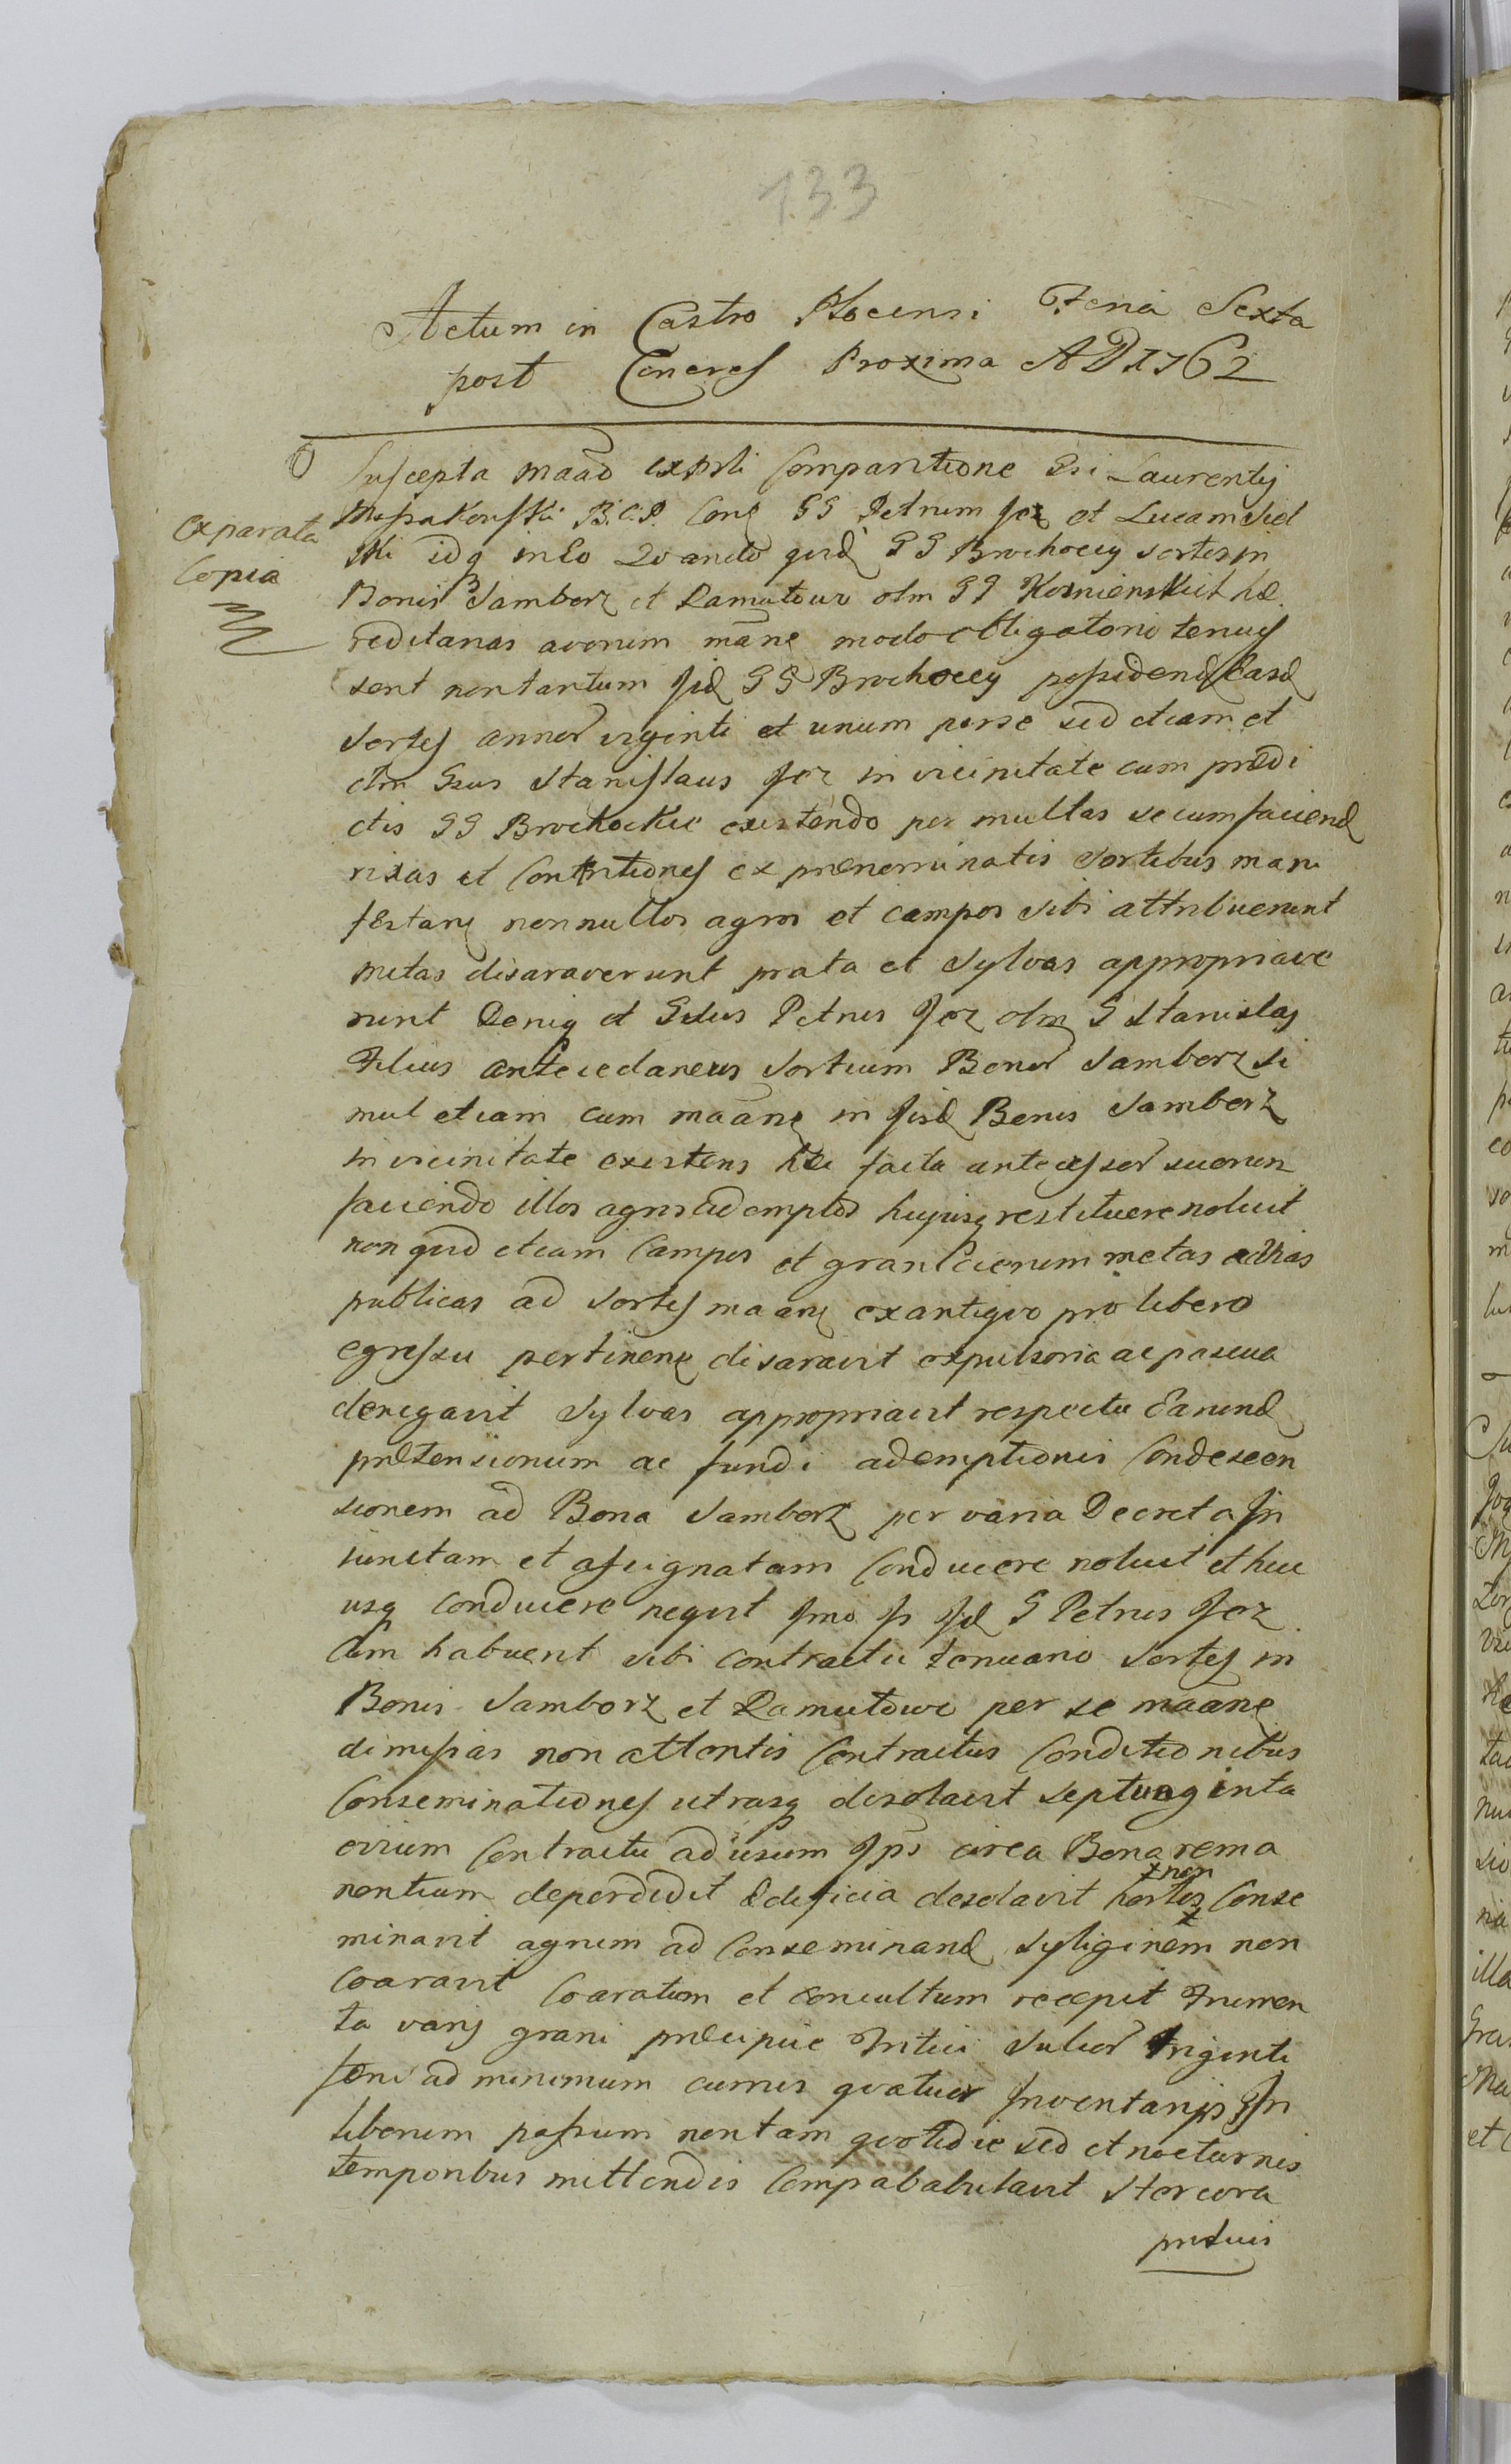 133
Actum in Castro Plocensi Feria Sexta
post Cineres Proxima AD 1762
Suscepta maād ex prti Comparitione Gsi Laurentij
B.C.P. Conq GG Petrum Jez et Lucam Sied
idq in Eo Qvando qvd GG Brochoccy Sortes in
Bonis Samborz et Ramutowo olm GG Kosmienskich hæ
reditarias avorum māne modo obligatorio tenuis
sent non tantum Jid GG Brochoccy possidend Easd
Sortes annor viginti et unum per se sed etiam et
olm Gsus Stanislaus Jez in vicinitate cum prædi
ctis GG Brochockie existendo per multas secum faciend
rixas et Contntiones ex prænominatis Sortibus mani
festanq nonnullos agros et campos sibi attribuerunt
metas disaraverunt prata et Sylvas appropriave
runt Deniq et Gsus Petrus Jez olm G Stanislaj
Filius antecedaneus Sortium Bonor Samborz si
mul etiam cum maāne in Jisd Bonis Samborz
in vicinitate existens facta antecessor suorum
faciendo illos agros ademptos hujusq restituere noluit
non qvid etiam Campos et granicierum metas ad vias
publicas ad Sortes maāne ex antiqvo pro libero
egressu pertinene disaravit expulsoria ac pascua
denegavit Sylvas appropriavit respectu Earund
prætensionum ac fundi ademptionis Condescen
sionem ad Bona Samborz per varia Decreta In
iunctam et assignatam Conducere noluit et huc
usq conducere neqvit Imo Is Jd G Petrus Jez
Cum habuerit sibi contractu tenuario Sortes in
Bonis Samborz et Ramutowo per se maane
dimissas non attentis Contractus Conditionibus
Conseminationes utrasq desolavit septuaginta
ovium Contractu ad usum Ips circa Bona rema
nentium deperdidit Ædificia desolavit hortos x non Conse
minavit agrum ad Conseminand Syliginem non
Coaravit Coaratum et concultum recepit Frumen
ta varij grani præcipue Tritici Sulcos triginti
foeni ad minimum currus qvatuor Inventarijs In
liberum passum non tam qvotidie sed et nocturnis
temporibus mittendis Compababulavit Stercora
prætuis
Exparata
Copia